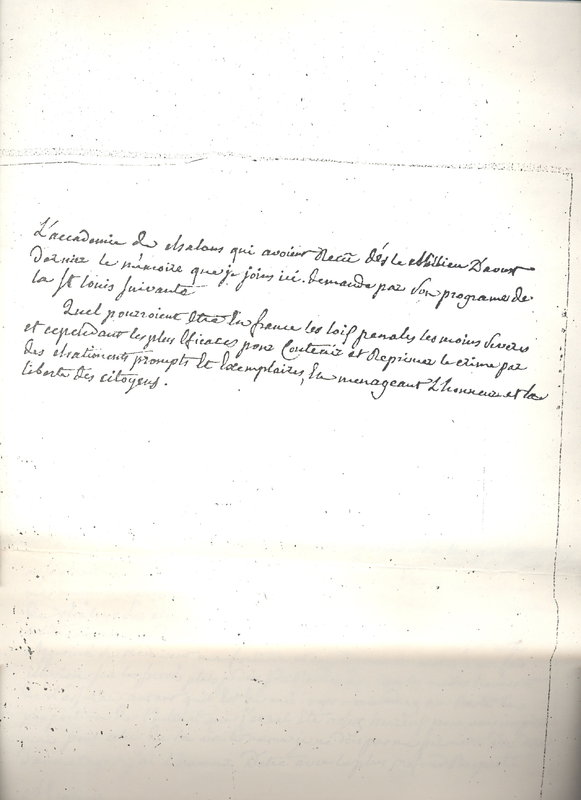 L'accademie de chalons qui avoient Recu dés le Millieu D'aoust
Dernier le mémoire que je joins ici. demanda par son programe de
la St Louis suivante
Quel pourroient être En france les loix penales les moins severes
et cependant les plus Eficaces pour Contenir et Reprimer le crime par
des chatiments prompts et Exemplaires, En menageant L'honneur et la
liberté des citoyens.